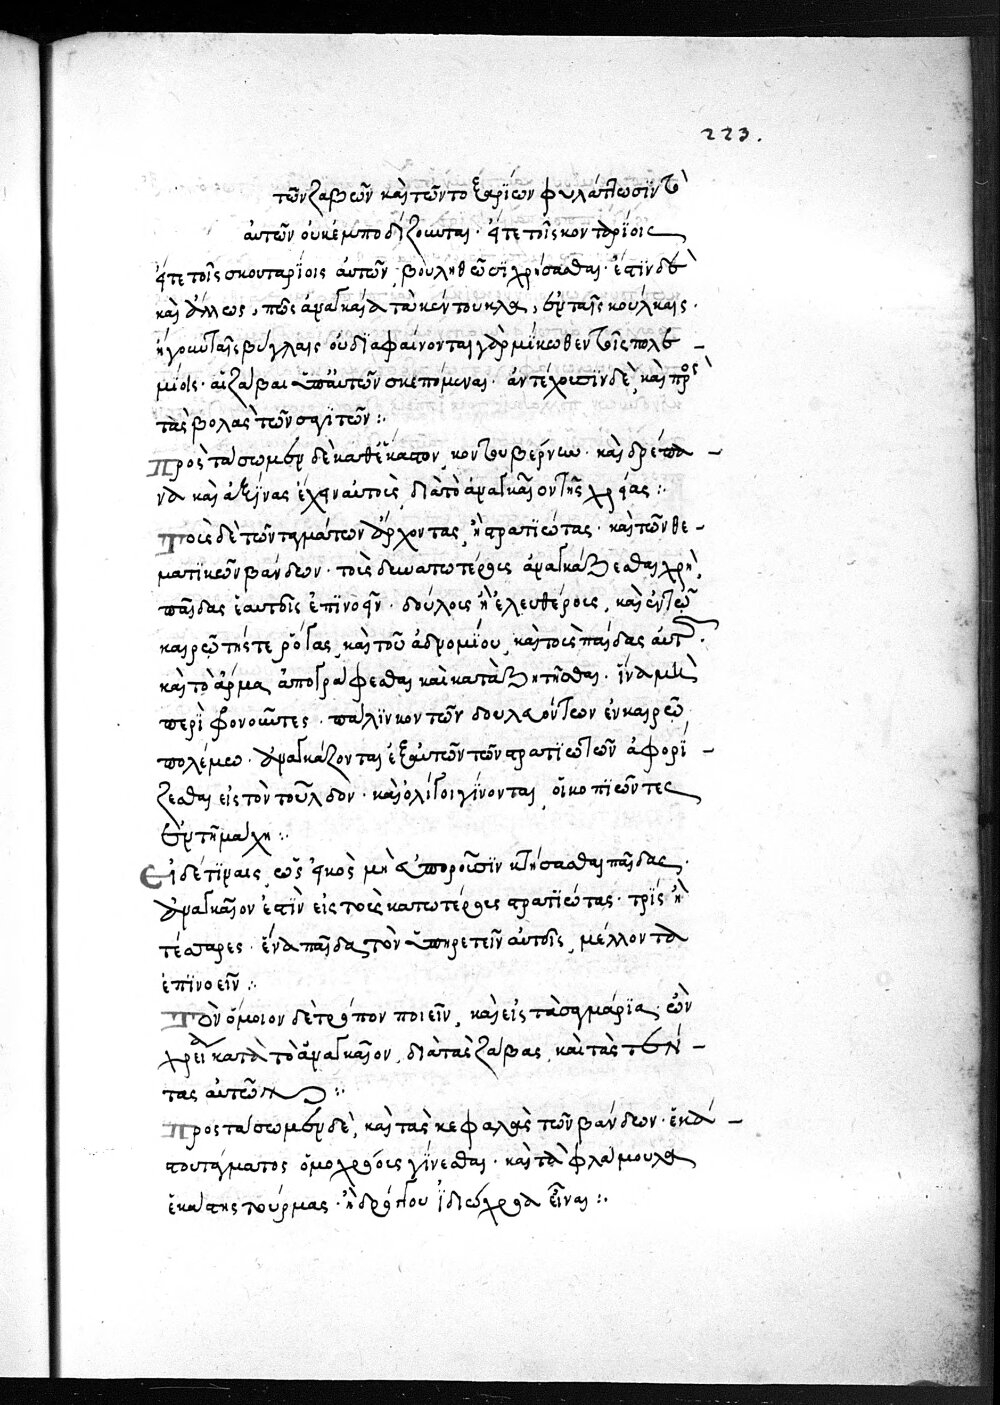 223.
τῶν ζαβῶν καὶ τῶν τοξαρίων φυλάττωσιν τὸ
αὐτῶν οὐκ ἐμποδίζονται· εἴτε τοῖς κονταρίοις
εἴτε τοῖς σκουταρίοις αὐτῶν βουληθῶσι χρήσασθαι· ἔστιν δὲ
καὶ ἄλλως, πῶς ἀναγκαῖα τὰ κέντουκλα, ἐν ταῖς κούλκαις·
ἤγουν ταῖς βίγλαις οὐ διαφαίνονται γὰρ μήκωθεν τοῖς πολε
μίοις· αἱ ζάβαι ὑπ αὐτῶν σκεπόμεναι· ἀντέχουσιν δὲ, καὶ πρὸς
τὰς βολὰς τῶν σαγιτῶν :·
Προστάσσωμεν δὲ καθέκαστον κοντουβέρνιω· καὶ δρέπα
να καὶ ἀξίνας ἔχειν αὐτοὺς διὰ τὸ ἀναγκαῖον τῆς χρείας :·
Τοὺς δὲ τῶν ταγμάτων ἄρχοντας, ἢ στρατιώτας· καὶ τῶν θε
ματικῶν βάνδων· τοὺς δυνατωτέρους ἀναγκάζεσθαι χρὴ,
παῖδας ἑαυτοῖς ἐπινοεῖν· δούλοις ἢ ἐλευθέροις, καὶ ἐν τῶ
καιρῶ τῆς τε ῥόγας, καὶ τοῦ ἀδνομίου, καὶ τοὺς παῖδας αὐτῶν·
καὶ τὸ ἄρμα ἀπογράφεσθαι καὶ καταζητῆσθαι· ἵνα μὴ
περιφονοῦντες· πάλιν κοντῶν δουλευόντων ἐν καιρῶ
πολέμω· ἀναγκάζονται ἐξ αὐτῶν τῶν στρατιωτῶν ἀφορί
ζεσθαι εἰς τὸν τοῦλδον· καὶ ὀλίγοι γίνονται οἱ κοπιῶντες
ἐν τῆ μάχη :·
Εἰ δέ τιναις, ὡς εἰκὸς μὴ εὐποροῦσιν κτήσασθαι παῖδας·
ἀναγκαῖον ἐστὶν εἰς τοὺς κατωτέρους στρατιώτας· τρῖς ἢ
τέσσαρες· ἕνα παῖδα τὸν ὑπηρετεῖν αὐτοῖς, μέλλοντα
ἐπινοεῖν :·
Τὸν ὅμοιον δὲ τρόπον ποιεῖν, καὶ εἰς τὰ σαγμάρια· ὧν
χρεία κατὰ τὸ ἀναγκαῖον, διὰ τὰς ζάβας, καὶ τὰς τέν
τας αὐτῶν :·
Προστάσσωμεν δὲ, καὶ τὰς κεφαλὰς τῶν βάνδων· ἑκά
στου τάγματος ὁμοχρόοις γίνεσθαι· καὶ τὰ φλάμουλα
ἑκάστης τούρμας· ἢ δρόγγου ἰδιώχροα εἶναι :·